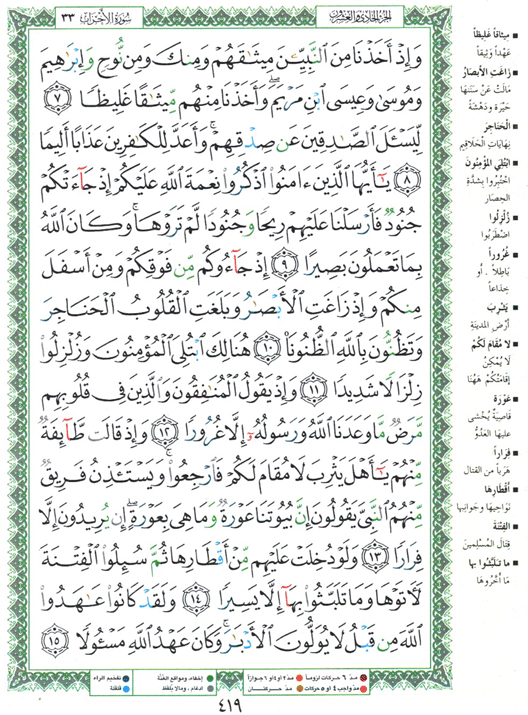 الجزء الحادي والعشرون
سورة الأحزاب ٣٣
وَإِذْ أَخَذْنَا مِنَ ٱلنَّبِيِّـۧنَ مِيثَٰقَهُمْ وَمِنكَ وَمِن نُّوحٍ وَإِبْرَٰهِيمَ
وَمُوسَىٰ وَعِيسَى ٱبْنِ مَرْيَمَ ۖ وَأَخَذْنَا مِنْهُم مِّيثَٰقًا غَلِيظًا ٧
لِّيَسْـَٔلَ ٱلصَّٰدِقِينَ عَن صِدْقِهِمْ ۚ وَأَعَدَّ لِلْكَٰفِرِينَ عَذَابًا أَلِيمًا
٨ يَٰٓأَيُّهَا ٱلَّذِينَ ءَامَنُوا۟ ٱذْكُرُوا۟ نِعْمَةَ ٱللَّهِ عَلَيْكُمْ إِذْ جَآءَتْكُمْ
جُنُودٌ فَأَرْسَلْنَا عَلَيْهِمْ رِيحًا وَجُنُودًا لَّمْ تَرَوْهَا ۚ وَكَانَ ٱللَّهُ
بِمَا تَعْمَلُونَ بَصِيرًا ٩ إِذْ جَآءُوكُم مِّن فَوْقِكُمْ وَمِنْ أَسْفَلَ
مِنكُمْ وَإِذْ زَاغَتِ ٱلْأَبْصَٰرُ وَبَلَغَتِ ٱلْقُلُوبُ ٱلْحَنَاجِرَ
وَتَظُنُّونَ بِٱللَّهِ ٱلظُّنُونَا۠ ١٠ هُنَالِكَ ٱبْتُلِىَ ٱلْمُؤْمِنُونَ وَزُلْزِلُوا۟
زِلْزَالًا شَدِيدًا ١١ وَإِذْ يَقُولُ ٱلْمُنَٰفِقُونَ وَٱلَّذِينَ فِى قُلُوبِهِم
مَّرَضٌ مَّا وَعَدَنَا ٱللَّهُ وَرَسُولُهُۥٓ إِلَّا غُرُورًا ١٢ وَإِذْ قَالَت طَّآئِفَةٌ
مِّنْهُمْ يَٰٓأَهْلَ يَثْرِبَ لَا مُقَامَ لَكُمْ فَٱرْجِعُوا۟ ۚ وَيَسْتَـْٔذِنُ فَرِيقٌ
مِّنْهُمُ ٱلنَّبِىَّ يَقُولُونَ إِنَّ بُيُوتَنَا عَوْرَةٌ وَمَا هِىَ بِعَوْرَةٍ ۖ إِن يُرِيدُونَ إِلَّا
فِرَارًا ١٣ وَلَوْ دُخِلَتْ عَلَيْهِم مِّنْ أَقْطَارِهَا ثُمَّ سُئِلُوا۟ ٱلْفِتْنَةَ
لَـَٔاتَوْهَا وَمَا تَلَبَّثُوا۟ بِهَآ إِلَّا يَسِيرًا ١٤ وَلَقَدْ كَانُوا۟ عَٰهَدُوا۟
ٱللَّهَ مِن قَبْلُ لَا يُوَلُّونَ ٱلْأَدْبَٰرَ ۚ وَكَانَ عَهْدُ ٱللَّهِ مَسْـُٔولًا ١٥
ميثاقاً غليظاً
عهداً وثيقاً
زاغت الأبصار
مالت عن سننها
حيرة ودهشة
الحناجر
نهايات الحلاقيم
ابتلي المؤمنون
اختبروا بشدة
الحصار
زلزلوا
اضطربوا
غروراً
باطلاً . أو
خداعاً
يثرب
أرض المدينة
لا مقام لكم
لا يمكن
إقامتكم ههنا
عورة
قاصية يخشى
عليها العدو
فراراً
هرباً من القتال
أقطارها
نواحيها وجوانبها
الفتنة
قتال المسلمين
ما تلبثوا بها
ما أخروها
مد ٦ حركات لزوماً
مد ٢ أو ٤ أو ٦ جوازاً
إخفاء، ومواقع الغنة
تفخيم الراء
مد واجب ٤ أو ٥ حركات
مد حركتان
ادغام ، وما لا يلفظ
قلقلة
٤١٩